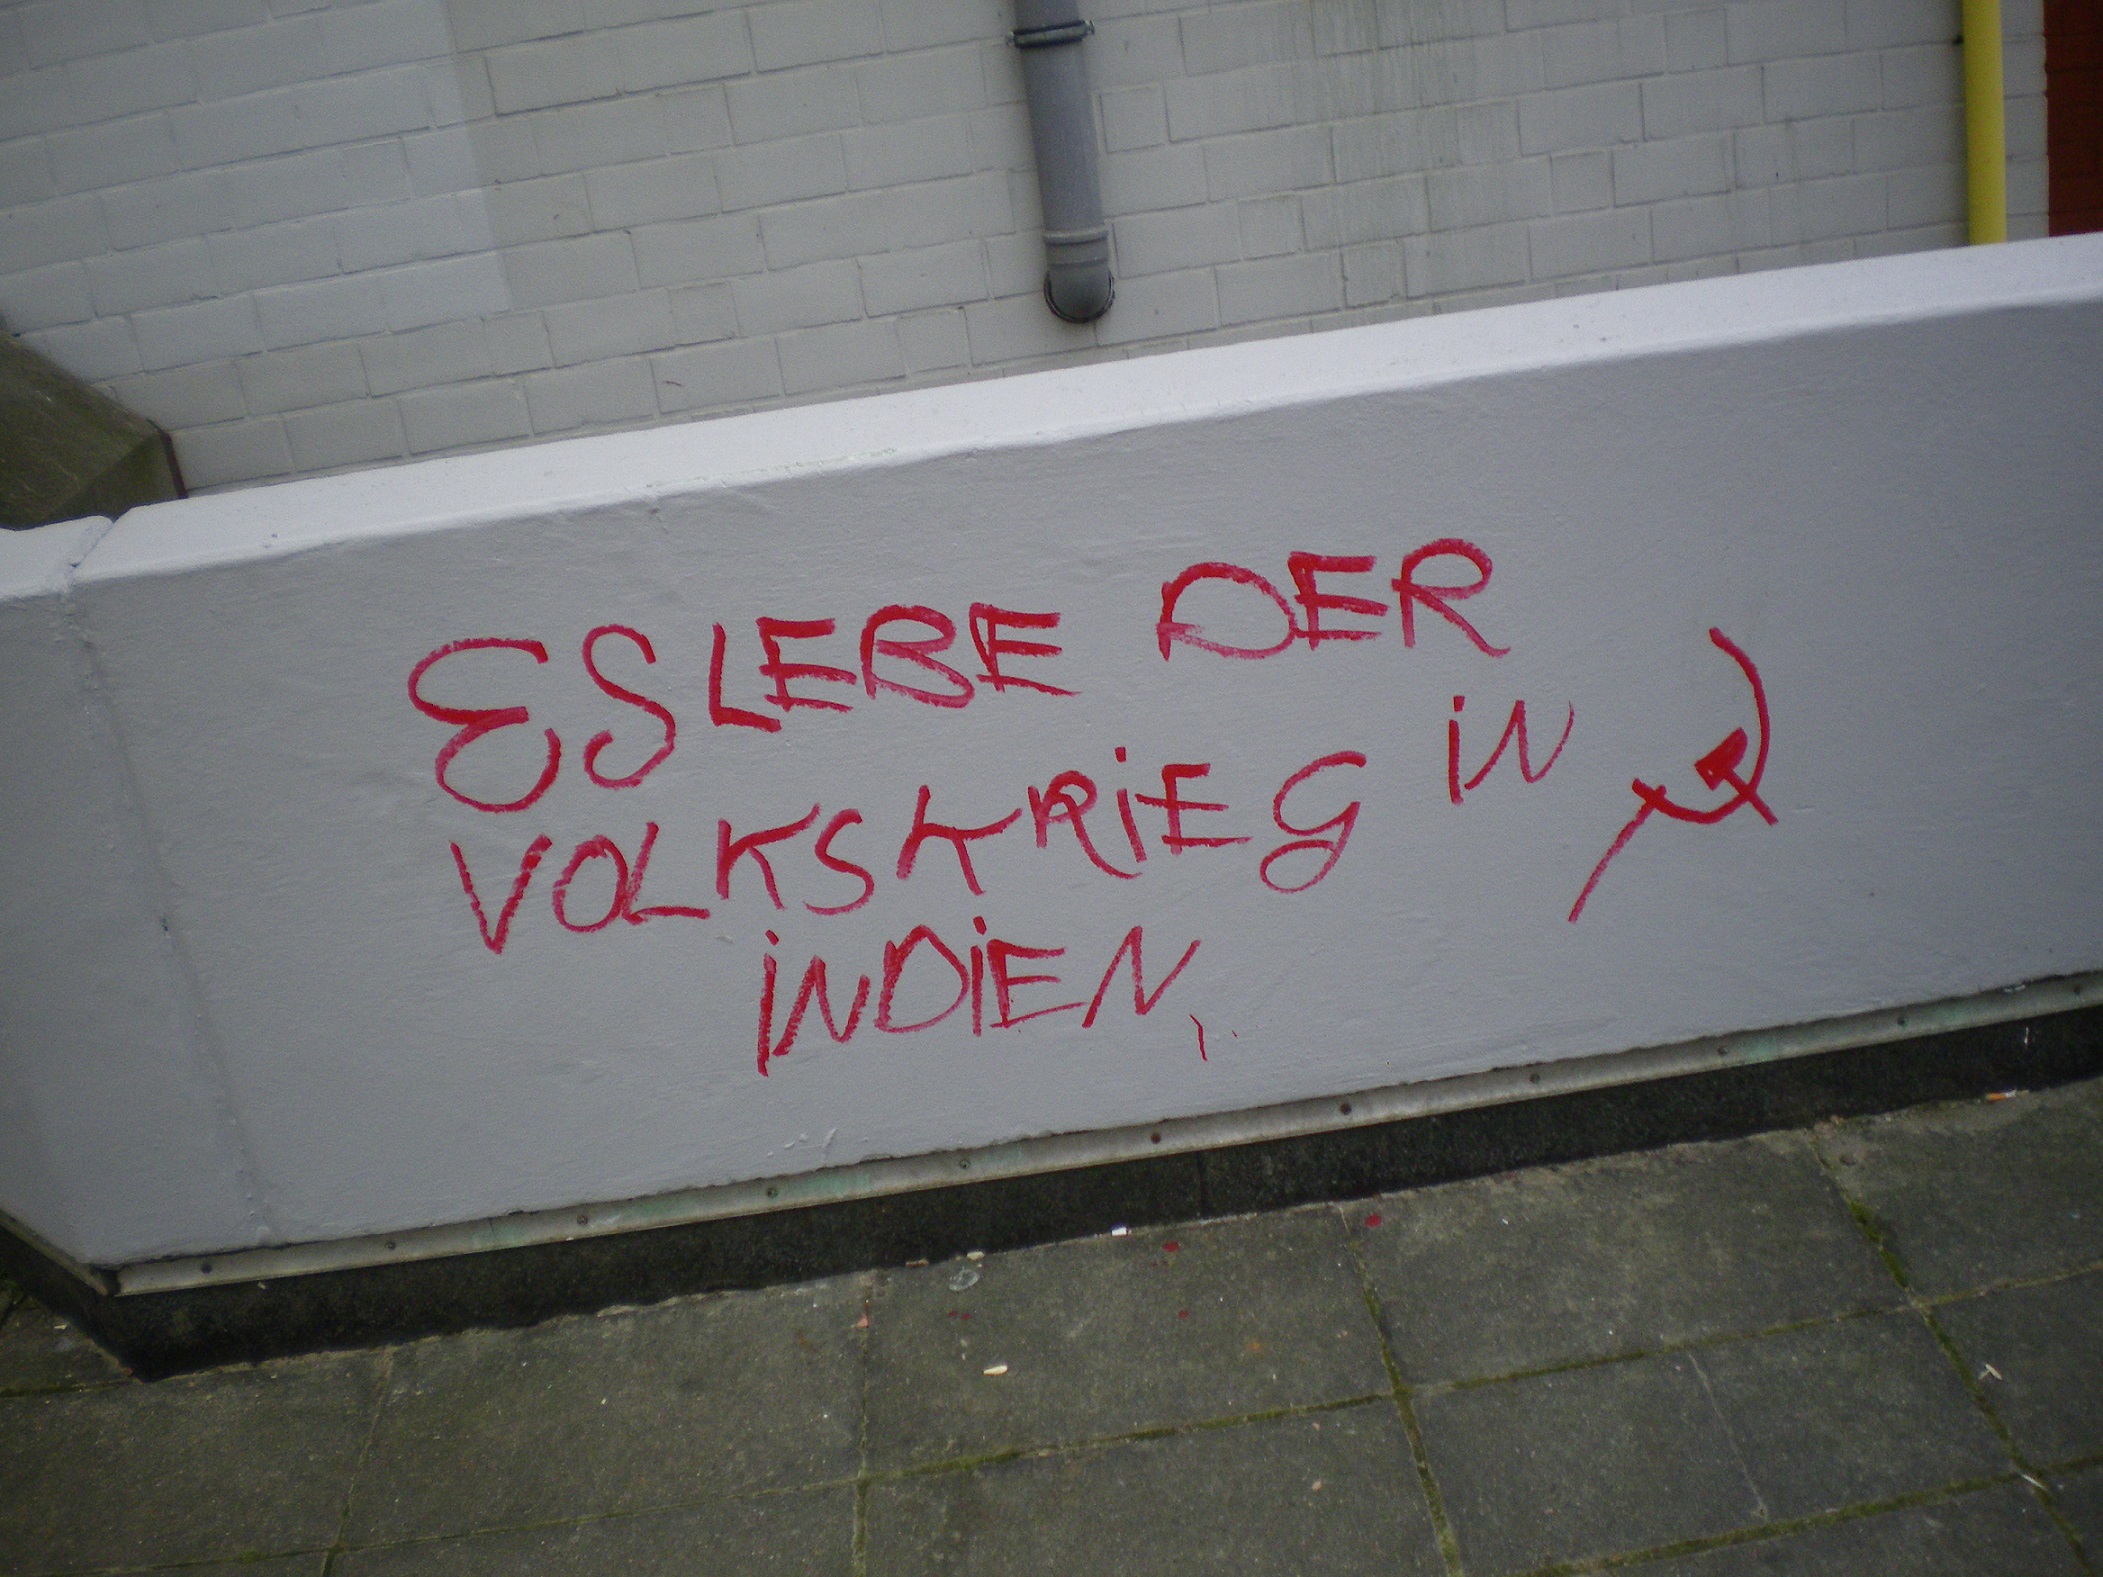 ES LEBE DER
VOLKSKRIEG iN
iNDiEN